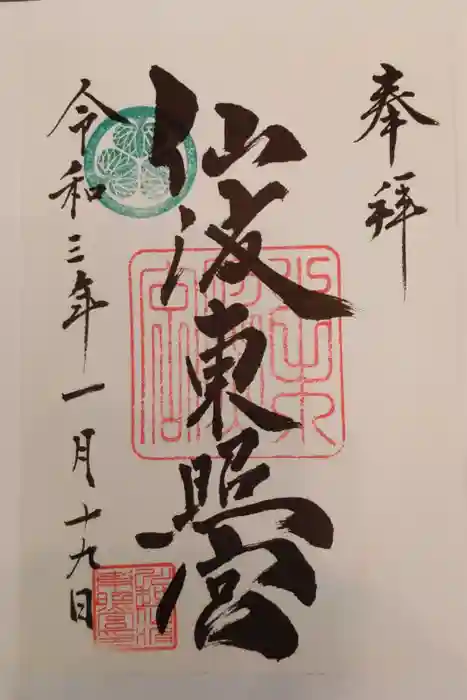 奉拝
仙波東照宮
令和三年一月十九日